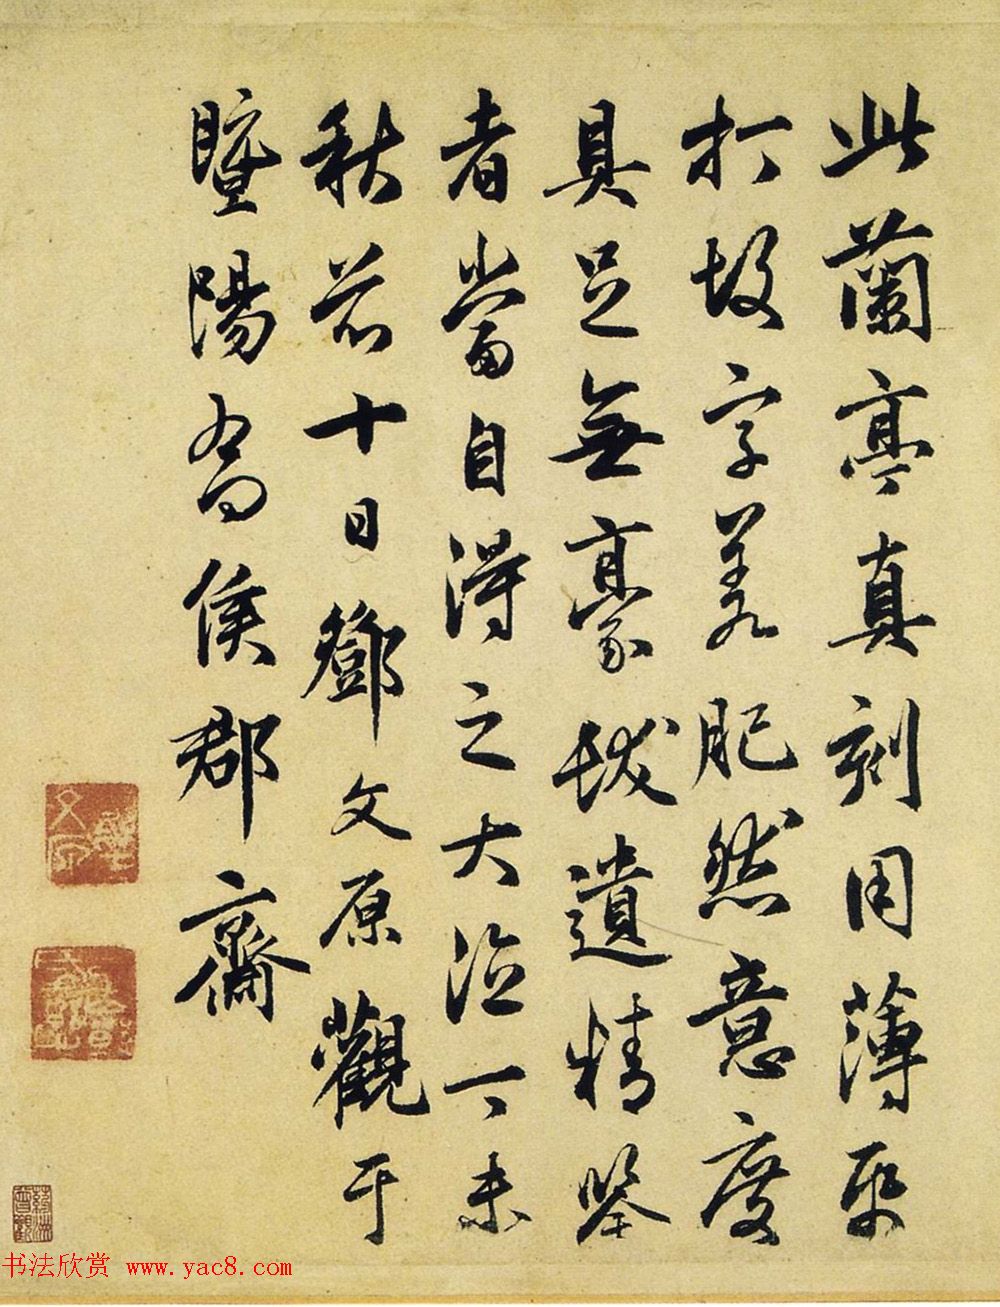 此蘭亭真刻用薄紙
打故字差肥然意度
具足無豪髮遺精鑒
者當自得之大德丁未
秋前十日鄧文原觀于
暨陽喬侯郡齋
书法欣赏 www.yac8.com